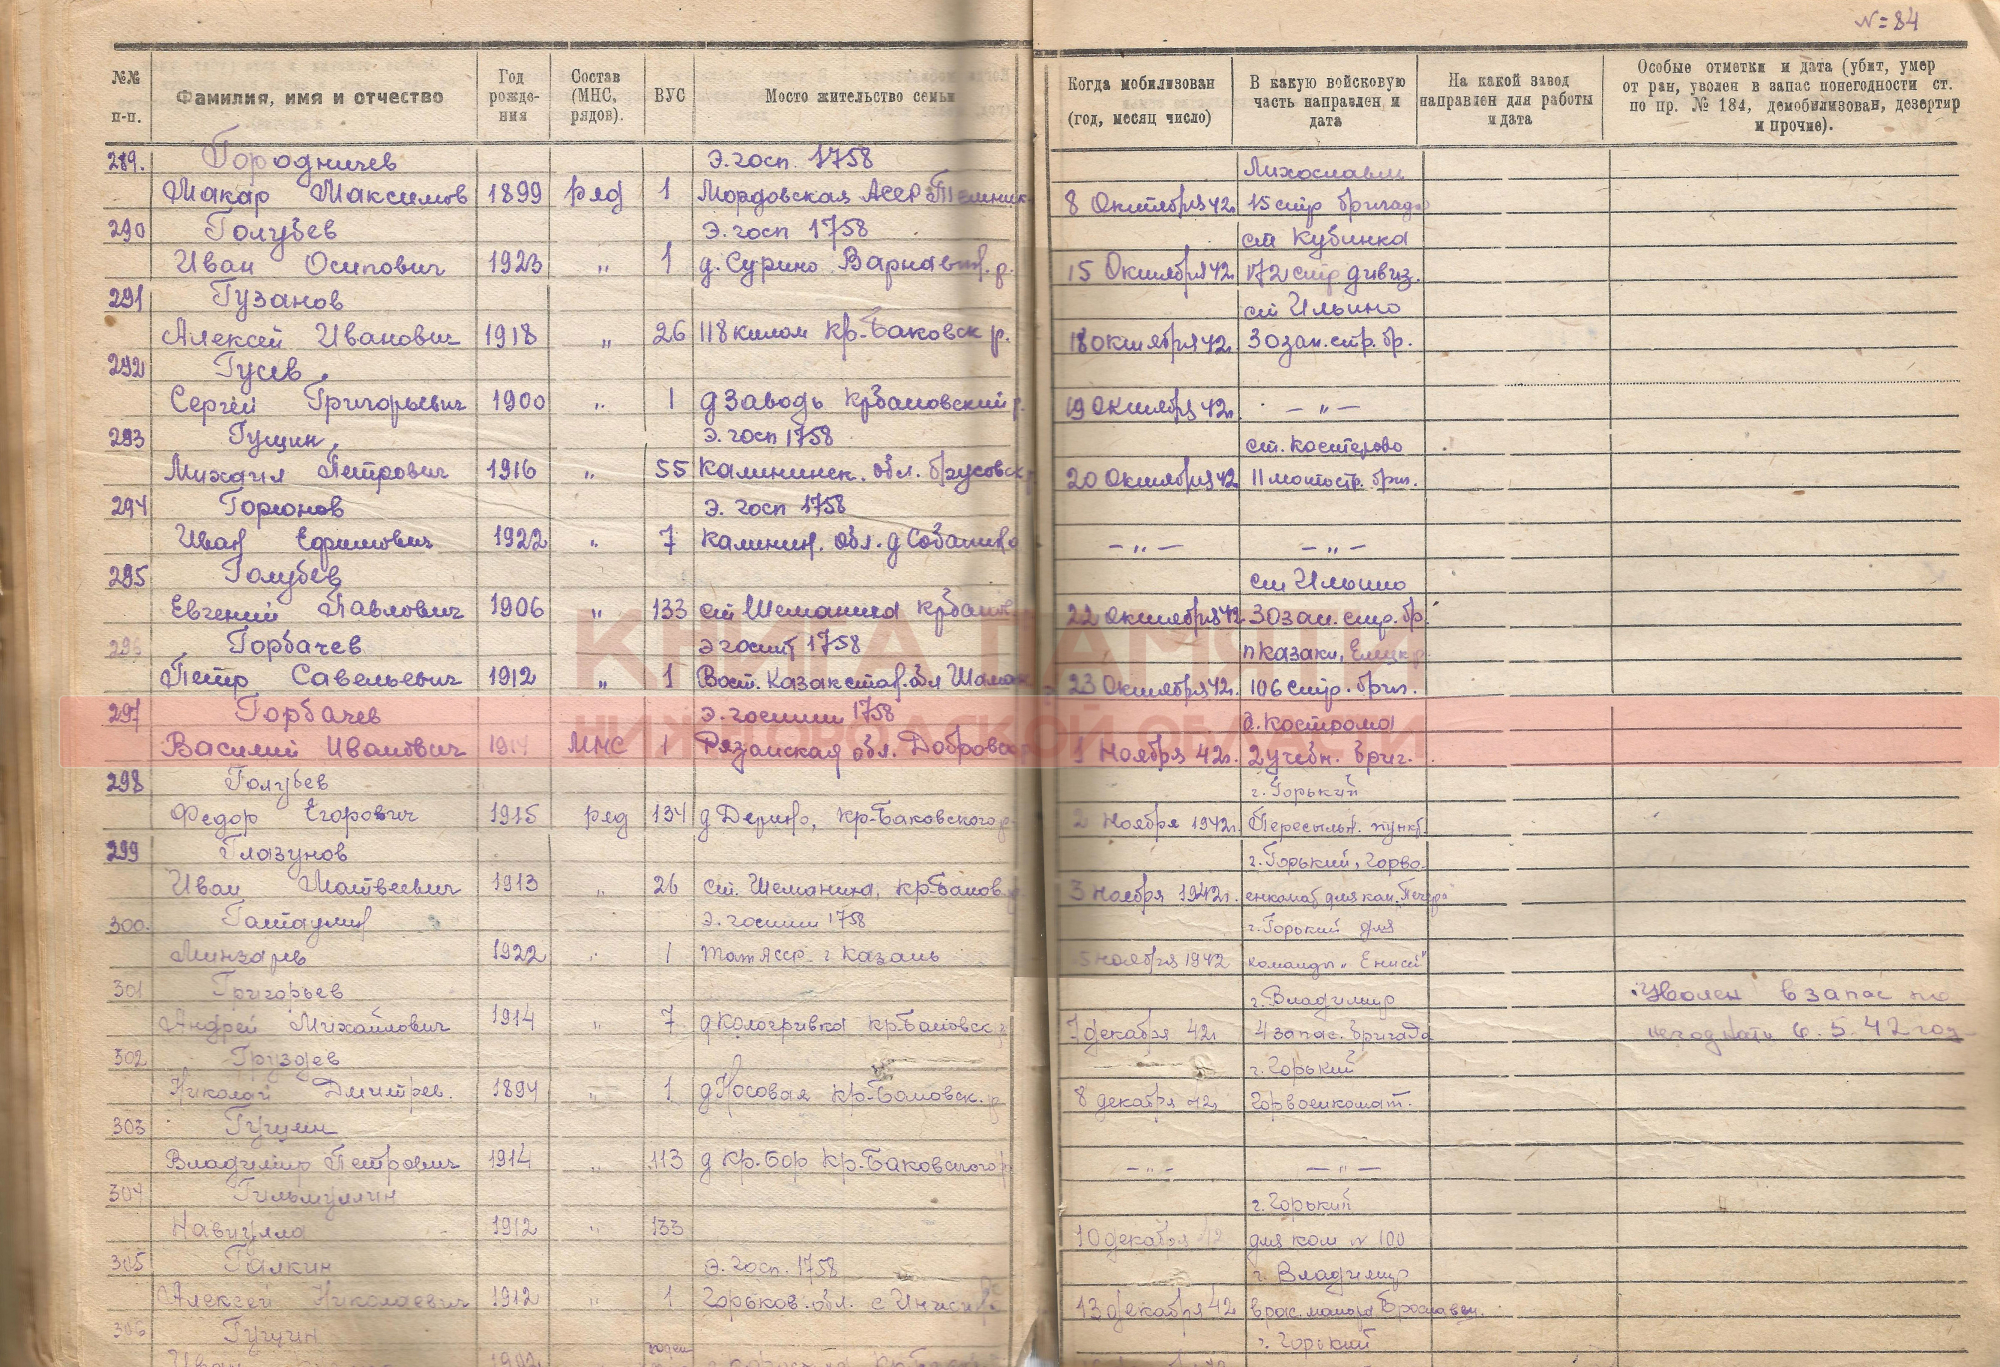 №=84
№№ п-п.
Фамилия, имя и отчество
Год рожде- ния
Состав (МНС, рядов).
ВУС
Место жительство семьи
Когда мобилизован (год, месяц число)
В какую войсковую часть направлен и дата
На какой завод направлен для работы и дата
Особые отметки и дата (убит, умер от ран, уволен в запас понегодности ст. по пр. № 184, демобилизован, дезертир и прочие).
289. Городничев Э.госп. 1758 Лихославль
Макар Максимов 1899 ряд 1 Мордовская АССР 8 Октября 42г. 15 стр бригада
290 Голубев Э.госп 1758 ст Кубинка
Иван Осипович 1923 „ 1 д.Сурино Варнавин. р. 15 Октября 42г. 172 стр дивиз.
291 Гузанов ст Ильино
Алексей Иванович 1918 „ 26 118 килом Кр-Баковск р. 18 октября 42г. 30 зап.стр.бр.
292 Гусев
Сергей Григорьевич 1900 „ 1 д Заводь Кр Баковский р. 19 Октября 42г. — „ —
293 Гущин Э.госп 1758 ст. Костерово
Михаил Петрович 1916 „ 55 Калининск. обл. 20 Октября 42 11 мотостр. бриг.
294 Горюнов Э. госп 1758
Иван Ефимович 1922 „ 7 Калинин. обл. д — „ — — „ —
295 Голубев ст Ильино
Евгений Павлович 1906 „ 133 ст Шеманиха КрБаков 22 Октября 42 30 зап. стр. бр.
296 Горбачев Э госпит 1758 п Казаки, Елецк р.
Петр Савельевич 1912 „ 1 Вост. Казахстан. обл 23 Октября 42г. 106 стр. бриг.
КНИГА ПАМЯТИ
НИЖЕГОРОДСКОЙ ОБЛАСТИ
297 Горбачев Э. госпит 1758 г. Кострома
Василий Иванович 1914 МНС 1 Рязанская обл. 1 Ноября 42г. 2 учебн. бриг.
298 Голубев г. Горький
Федор Егорович 1915 ряд 134 д Дерино, Кр-Баковского р. 2 Ноября 1942г. Пересыльн. пункт
299 Глазунов г. Горький, Горво-
Иван Матвеевич 1913 „ 26 ст. Шеманиха, Кр-Баков. р. 3 Ноября 1942г. енкомат для ком.
300. Э. госпит 1758 г. Горький для
1922 „ 1 Тат АССР г Казань 5 Ноября 1942 команды „Енисей"
301 Григорьев г. Владимир Уволен в запас по
Андрей Михайлович 1914 „ 7 д Кологривка Кр.Баковск. р. 7 декабря 42г. 4 запас. бригада негодности 6. 5. 42 год
302 Груздев г. Горький
Николай Дмитрев. 1894 „ 1 д Носовая Кр-Баковск. р 8 декабря 42г. Горвоенкомат.
303 Гущин
Владимир Петрович 1914 „ 113 д Кр.Бор Кр.Баковского р — „ — — „ —
304 Гильмуллин г. Горький
1912 „ 133 10 декабря 42 для ком № 100
305 Галкин Э. госп. 1758 г. Владимир
Алексей Николаевич 1912 „ 1 Горьков. обл. 13 декабря 42
306 Гущин г. Горький
Иван